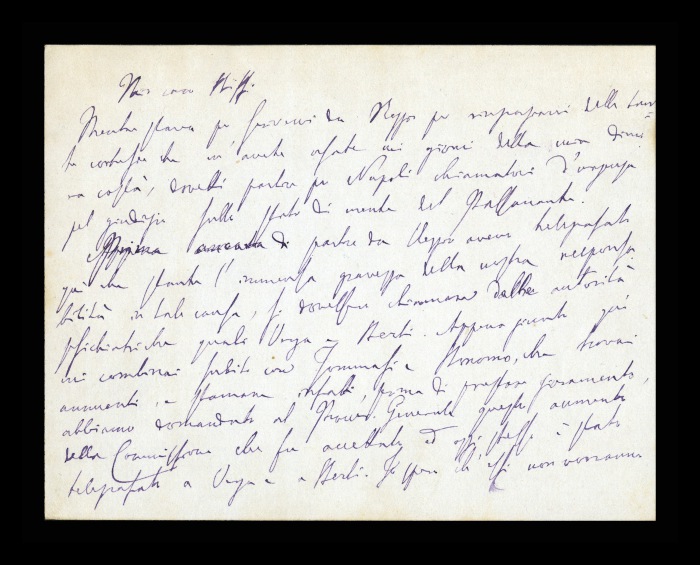 Mio caro Stiffi
Mentre stava per scrivervi da Reggio per ringraziarvi delle tan-
te cortesie che mi avete usate nei giorni della mia dimo
ra costà, dovetti partire per Napoli chiamatovi d'urgenza
pel giudizio sullo stato di mente del
Prima ancora di partire da Reggio aveva telegrafato
già che stante l'immensa gravezza della nostra responsa
bilità in tale causa, si dovessero chiamare delle autorità
psichiatriche quali Verga e Berti. Appena giunto qui
mi combinai subito con Tommasi e Bonomo, che trovai
annuenti, e stamane infatti, prima di prestare giuramento,
abbiamo domandato al Procur. Generale questo aumento
della Commissione che fu accettato ed oggi stesso è stato
telegrafato a Verga e a Berti. Io spero che essi non vorranno